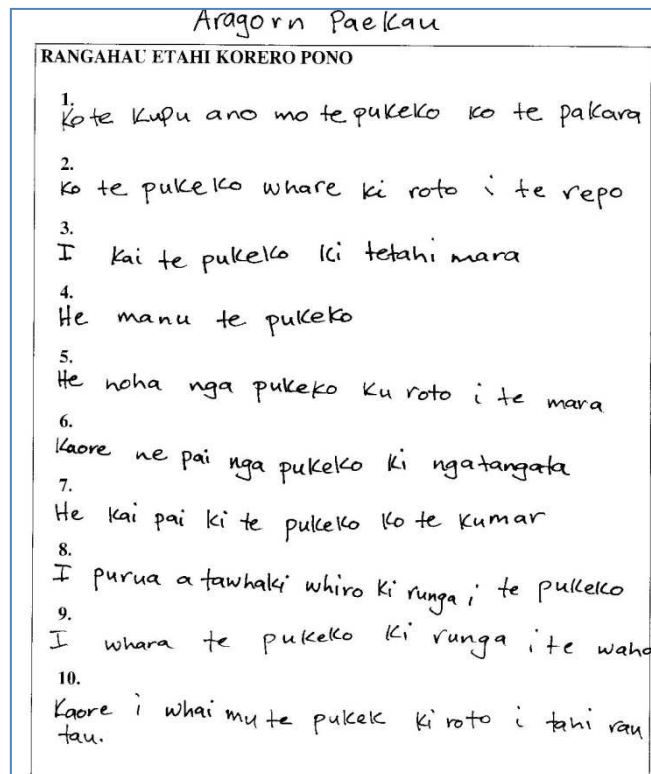 Aragorn Paekau
RANGAHAU ETAHI KORERO PONO
1.
Ko te kupu ano mo te pukeko ko te pakara
2.
Ko te pukeko whare ki roto i te repo
3.
I kai te pukeko ki tetahi mara
4.
He manu te pukeko
5.
He noha nga pukeko ku roto i te mara
6.
Kaore ne pai nga pukeko ki ngatangata
7.
He kai pai ki te pukeko ko te kumar
8.
I purua a tawhaki whiro ki runga i te pukeko
9.
I whara te pukeko ki runga i te waho
10.
Kaore i whai mu te pukek ki roto i tahi rau
tau.